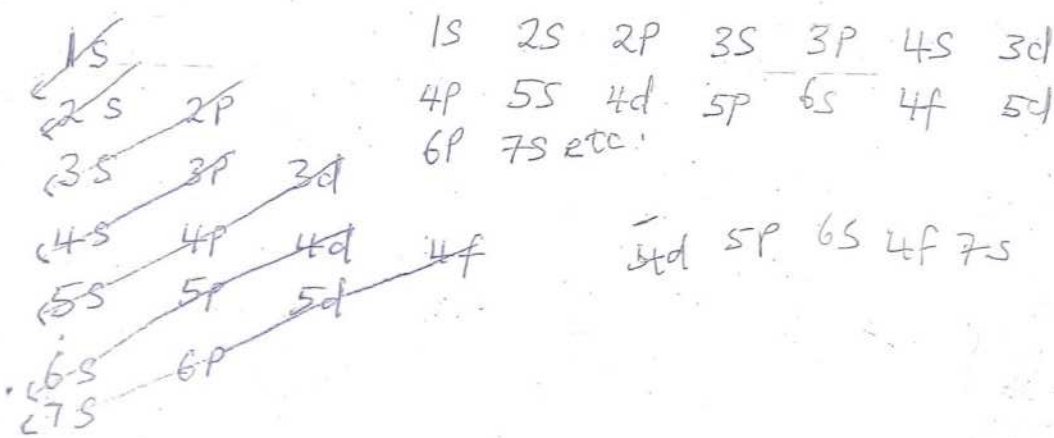 1s
2s 2p
3s 3p 3d
4s 4p 4d 4f
5s 5p 5d
6s 6p
7s
1s 2s 2p 3s 3p 4s 3d
4p 5s 4d 5p 6s 4f 5d
6p 7s etc.
4d 5p 6s 4f 7s